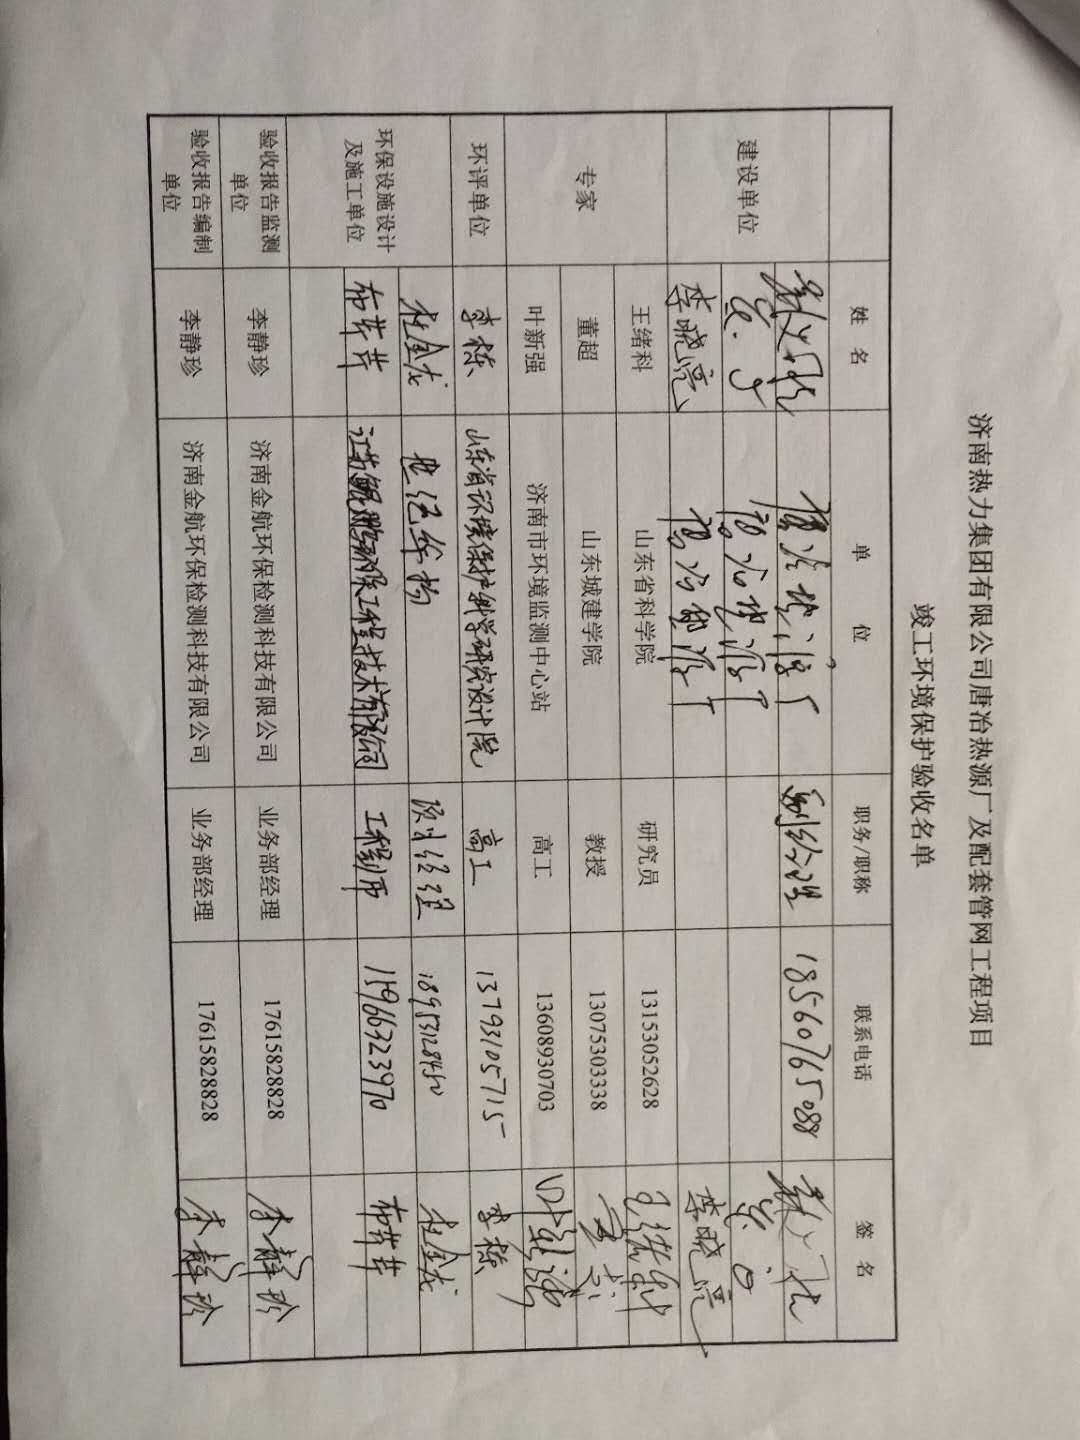 济南热力集团有限公司唐冶热源厂及配套管网工程项目
竣工环境保护验收名单
姓 名 单 位 职务/职称 联系电话 签 名
建设单位
唐冶热源厂 副经理 18560765088
唐冶热源厂
李晓亮 唐冶热源厂 李晓亮
专家
王绪科 山东省科学院 研究员 13153052628 王绪科
董超 山东城建学院 教授 13075303338 董超
叶新强 济南市环境监测中心站 高工 13608930703 叶新强
环评单位 李栋 山东省环境保护科学研究设计院 高工 13793105715 李栋
环保设施设计
及施工单位
杜金龙 项目经理 18953128450 杜金龙
布芹芹 江苏鲲鹏环保工程技术有限公司 工程师 15966323970 布芹芹
验收报告监测
单位
李静珍 济南金航环保检测科技有限公司 业务部经理 17615828828 李静珍
验收报告编制
单位
李静珍 济南金航环保检测科技有限公司 业务部经理 17615828828 李静珍